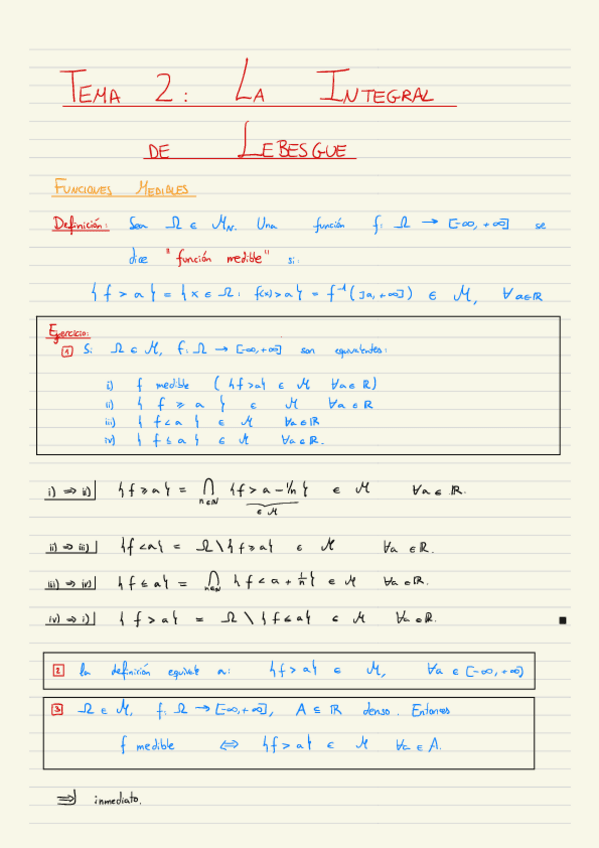 TEMA 2: LA INTEGRAL
DE LEBESGUE
FUNCIONES MEDIBLES
Definición: Sea Ω ∈ M_N. Una función f: Ω → [-∞, +∞] se
dice "función medible" si:
{f > a} = {x ∈ Ω: f(x) > a} = f⁻¹(]a, +∞]) ∈ M, ∀a∈ℝ
Ejercicio:
1 Si Ω ∈ M, f: Ω → [-∞, +∞] son equivalentes:
i) f medible ({f>a} ∈ M ∀a∈ℝ)
ii) {f ≥ a} ∈ M ∀a∈ℝ
iii) {f < a} ∈ M ∀a∈ℝ
iv) {f ≤ a} ∈ M ∀a∈ℝ.
i) ⇒ ii) {f ≥ a} = ⋂_{n∈ℕ} {f > a - 1/n} ∈ M ∀a∈ℝ.
∈ M
ii) ⇒ iii) {f < a} = Ω \ {f ≥ a} ∈ M ∀a ∈ℝ.
iii) ⇒ iv) {f ≤ a} = ⋂_{n∈ℕ} {f < a + 1/n} ∈ M ∀a ∈ℝ.
iv) ⇒ i) {f > a} = Ω \ {f ≤ a} ∈ M ∀a ∈ℝ. ■
2 la definición equivale a: {f > a} ∈ M, ∀a ∈ [-∞, +∞)
3 Ω ∈ M, f: Ω → [-∞, +∞], A ⊆ ℝ denso. Entonces
f medible ⇔ {f > a} ∈ M ∀a ∈ A.
⇒ inmediato.